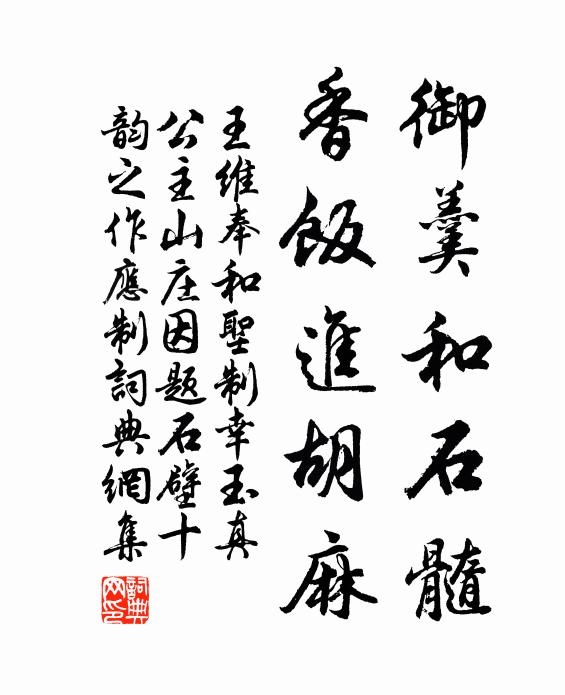 御羹和石髓
香飯進胡麻
王維奉和聖制幸玉真
公主山庄因題石壁十
韵之作應制詞典網集
詞典网印